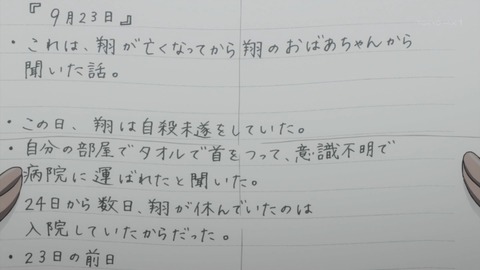 『9月23日』
・これは、翔が亡くなってから翔のおばあちゃんから
聞いた話。
・この日、翔は自殺未遂をしていた。
・自分の部屋でタオルで首をつって、意識不明で
病院に運ばれたと聞いた。
24日から数日、翔が休んでいたのは
入院していたからだった。
・23日の前日